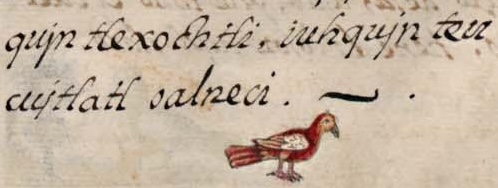 qujn tlexochtli, iuhqujn teu
cujtlatl oalneci.